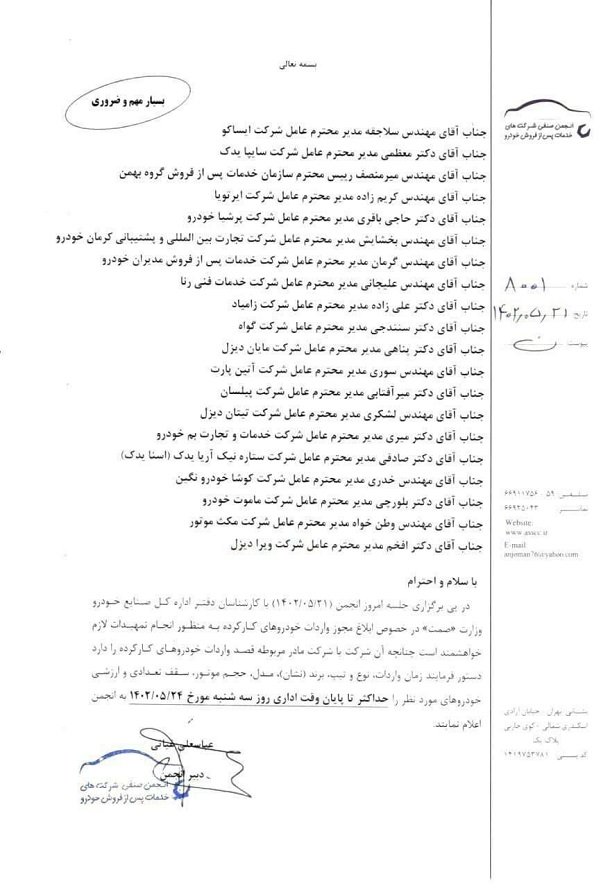 بسمه تعالی
بسیار مهم و ضروری
انجمن صنفی شرکت های
خدمات پس از فروش خودرو
جناب آقای مهندس سلاجقه مدیر محترم عامل شرکت ایساکو
جناب آقای دکتر معظمی مدیر محترم عامل شرکت سایپا یدک
جناب آقای مهندس میرمنصف رییس محترم سازمان خدمات پس از فروش گروه بهمن
جناب آقای مهندس کریم زاده مدیر محترم عامل شرکت ایرتویا
جناب آقای دکتر حاجی باقری مدیر محترم عامل شرکت پرشیا خودرو
جناب آقای مهندس بخشایش مدیر محترم عامل شرکت تجارت بین المللی و پشتیبانی کرمان خودرو
جناب آقای مهندس گرمان مدیر محترم عامل شرکت خدمات پس از فروش مدیران خودرو
جناب آقای مهندس علیجانی مدیر محترم عامل شرکت خدمات فنی رنا
جناب آقای دکتر علی زاده مدیر محترم عامل شرکت زامیاد
جناب آقای دکتر سنندجی مدیر محترم عامل شرکت گواه
جناب آقای دکتر پناهی مدیر محترم عامل شرکت مایان دیزل
جناب آقای مهندس سوری مدیر محترم عامل شرکت آتین پارت
جناب آقای دکتر میرآفتابی مدیر محترم عامل شرکت پیلسان
جناب آقای مهندس لشکری مدیر محترم عامل شرکت تیتان دیزل
جناب آقای دکتر میری مدیر محترم عامل شرکت خدمات و تجارت بم خودرو
جناب آقای دکتر صادقی مدیر محترم عامل شرکت ستاره نیک آریا یدک (اسنا یدک)
جناب آقای مهندس خدری مدیر محترم عامل شرکت کوشا خودرو نگین
جناب آقای دکتر بلورچی مدیر محترم عامل شرکت ماموت خودرو
جناب آقای مهندس وطن خواه مدیر محترم عامل شرکت مکث موتور
جناب آقای دکتر افخم مدیر محترم عامل شرکت ویرا دیزل
با سلام و احترام
در پی برگزاری جلسه امروز انجمن (۱۴۰۲/۰۵/۲۱) با کارشناسان دفتر اداره کل صنایع خودرو
وزارت «صمت» در خصوص ابلاغ مجوز واردات خودروهای کارکرده به منظور انجام تمهیدات لازم
خواهشمند است چنانچه آن شرکت یا شرکت مادر مربوطه قصد واردات خودروهای کارکرده را دارد
دستور فرمایند زمان واردات، نوع و تیپ، برند (نشان)، مدل، حجم موتور، سقف تعدادی و ارزشی
خودروهای مورد نظر را حداکثر تا پایان وقت اداری روز سه شنبه مورخ ۱۴۰۲/۰۵/۲۴ به انجمن
اعلام نمایند.
دبیر انجمن
انجمن صنفی شرکت های
خدمات پس از فروش خودرو
شماره ۸۰۰۱
تاریخ ۱۴۰۲,۰۵,۲۱
پیوست
تلفن ۵۹ - ۶۶۹۱۱۷۵۶
نمابر ۶۶۹۲۵۰۴۳
Website:
www.asscc.ir
E-mail
anjoman76@yahoo.com
نشانی تهران - خیابان آزادی
اسکندری شمالی - کوی حاربی
پلاک یک
کد پستی ۱۴۱۹۷۵۳۷۸۱